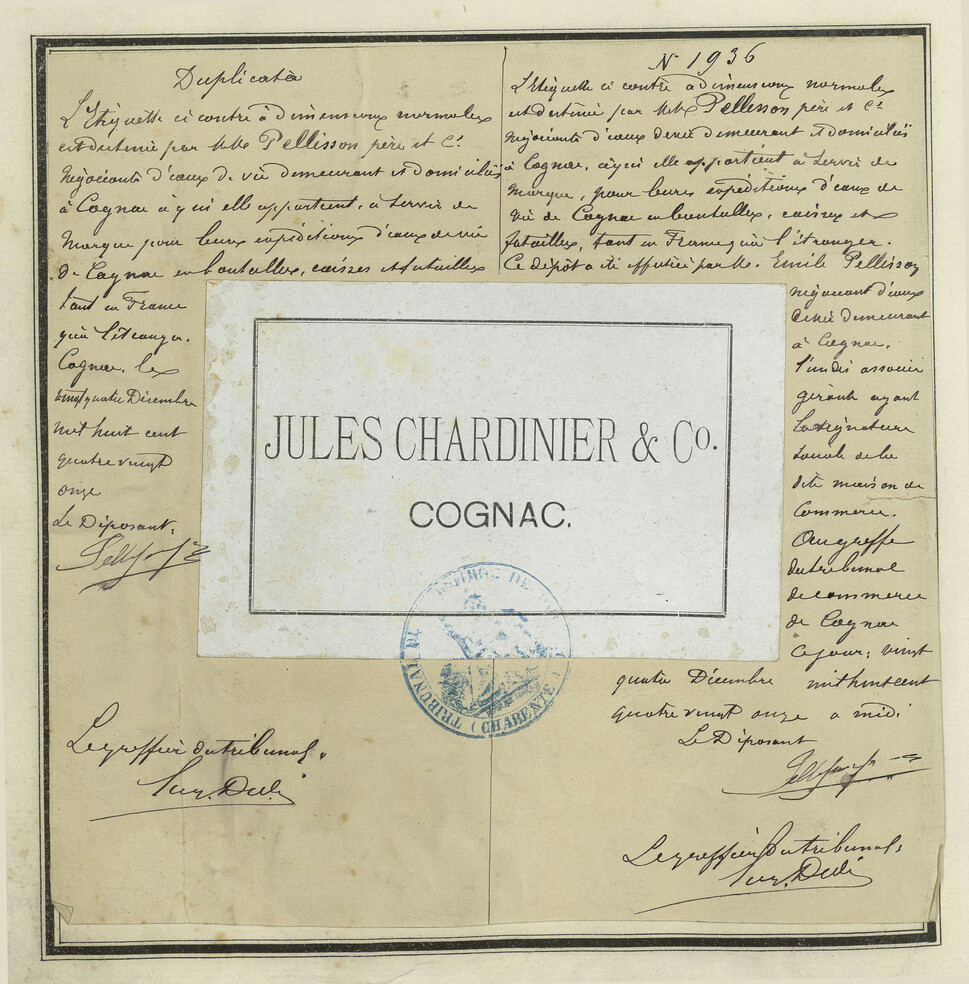 Duplicata
L'Etiquette ci contre à dimensions normales
est destinée par MM. Pellisson père et Cie
négociants d'eaux de vie demeurant et domiciliés
à Cognac à qui elle appartient, à servir de
marque pour leurs expéditions d'eaux de vie
de Cognac en bouteilles, caisses et futailles
tant en France
qu'à l'étranger.
Cognac, le
vingt quatre Décembre
mil huit cent
quatre vingt
onze
Le Déposant,
Le greffier du tribunal,
N° 1936
L'Etiquette ci contre à dimensions normales
est destinée par MM. Pellisson père et Cie
négociants d'eaux de vie demeurant et domiciliés
à Cognac, à qui elle appartient à servir de
marque, pour leurs expéditions d'eaux de
vie de Cognac en bouteilles, caisses et
futailles, tant en France qu'à l'étranger.
Ce dépôt a été effectué par M. Emile Pellisson
négociant d'eaux
de vie demeurant
à Cognac,
l'un des associés
gérants ayant
la signature
sociale de la
dite maison de
Commerce.
Au greffe
du tribunal
de commerce
de Cognac
ce jour, vingt
quatre Décembre mil huit cent
quatre vingt onze à midi
Le Déposant
Le greffier du tribunal,
JULES CHARDINIER & Co.
COGNAC.
TRIBUNAL DE
(CHARENTE)